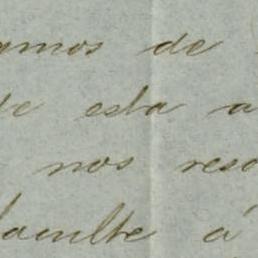 gmos de
de esta a
nos reso
faculte á